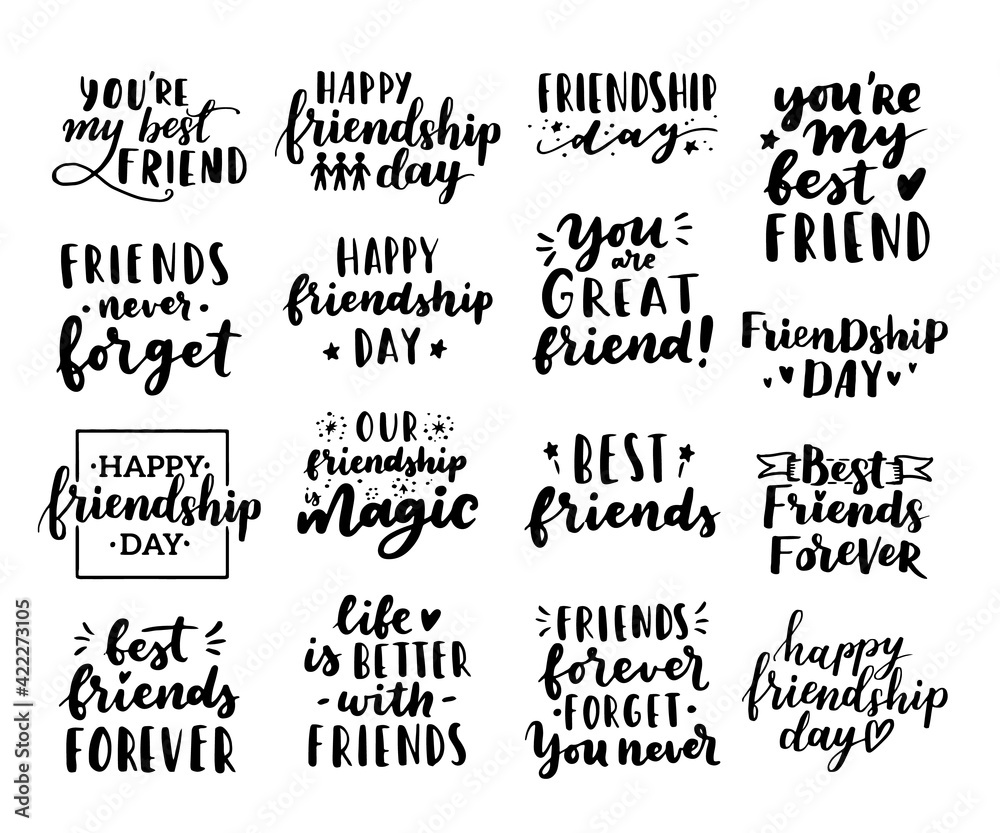 YOU'RE
my best
FRIEND
HAPPY
friendship
day
FRIENDSHIP
day
you're
my
best
FRIEND
FRIENDS
never
forget
HAPPY
friendship
DAY
You
are
GREAT
friend!
FrienDship
DAY
·HAPPY·
friendship
·DAY·
OUR
friendship
is
Magic
BEST
friends
Best
Friends
Forever
best
friends
FOREVER
life
is BETTER
-with-
FRIENDS
FRIENDS
forever
·FORGET·
You never
happy
friendship
day
Adobe Stock | #422273105